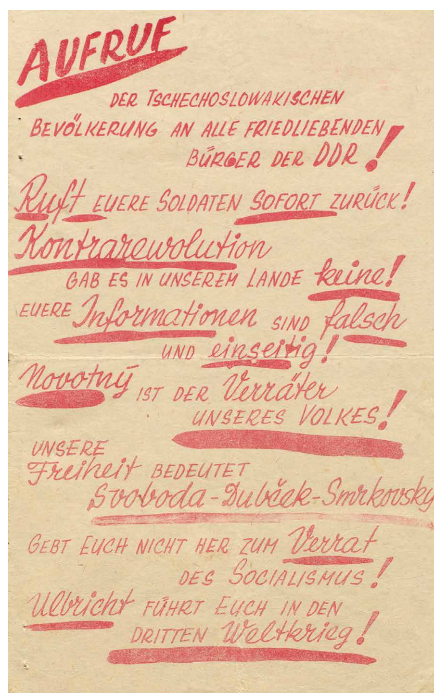 AUFRUF
DER TSCHECHOSLOWAKISCHEN
BEVÖLKERUNG AN ALLE FRIEDLIEBENDEN
BÜRGER DER DDR!
Ruft EUERE SOLDATEN SOFORT ZURÜCK!
Kontrarewolution
GAB ES IN UNSEREM LANDE keine!
EUERE Informationen SIND falsch
UND einseitig!
Novotný IST DER Verräter
UNSERES VOLKES!
UNSERE
Freiheit BEDEUTET
Svoboda-Dubček-Smrkovský
GEBT EUCH NICHT HER ZUM Verrat
DES SOCIALISMUS!
Ulbricht FÜHRT EUCH IN DEN
DRITTEN Weltkrieg!